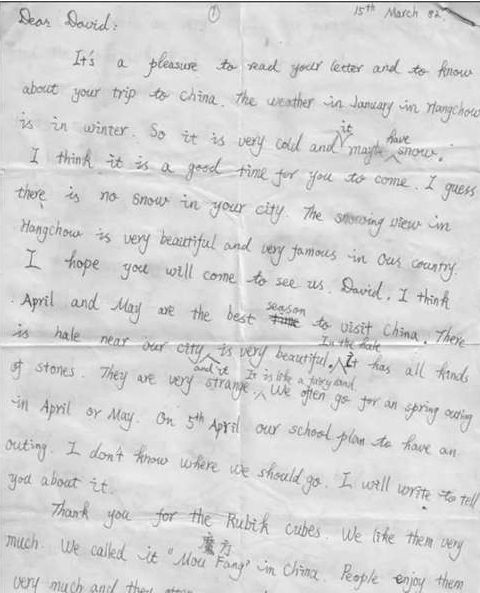 ①
15th March 82.
Dear David:
It's a pleasure to read your letter and to know
about your trip to China. The weather in January in Hangchow
is in winter. So it is very cold and it maybe have snow.
I think it is a good time for you to come. I guess
there is no snow in your city. The snowing view in
Hangchow is very beautiful and very famous in our country.
I hope you will come to see us. David, I think
April and May are the best season to visit China. There
is hale near our city and it is very beautiful. In the hale It has all kinds
of stones. They are very strange. It is like a fairy land We often go for an spring outing
in April or May. On 5th April our school plan to have an
outing. I don't know where we should go. I will write to tell
you about it.
Thank you for the Rubik cubes. We like them very
much. We called it "Mou Fang" 魔方 in China. People enjoy them
very much and they